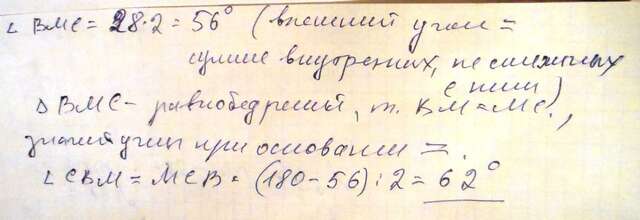 ∠ BMC = 28·2 = 56° (внешний угол =
сумме внутренних, не смежных
с ним)
Δ BMC – равнобедренный, т. BM = MC.,
значит углы при основании =.
∠ CBM = MCB = (180 – 56) : 2 = 62°